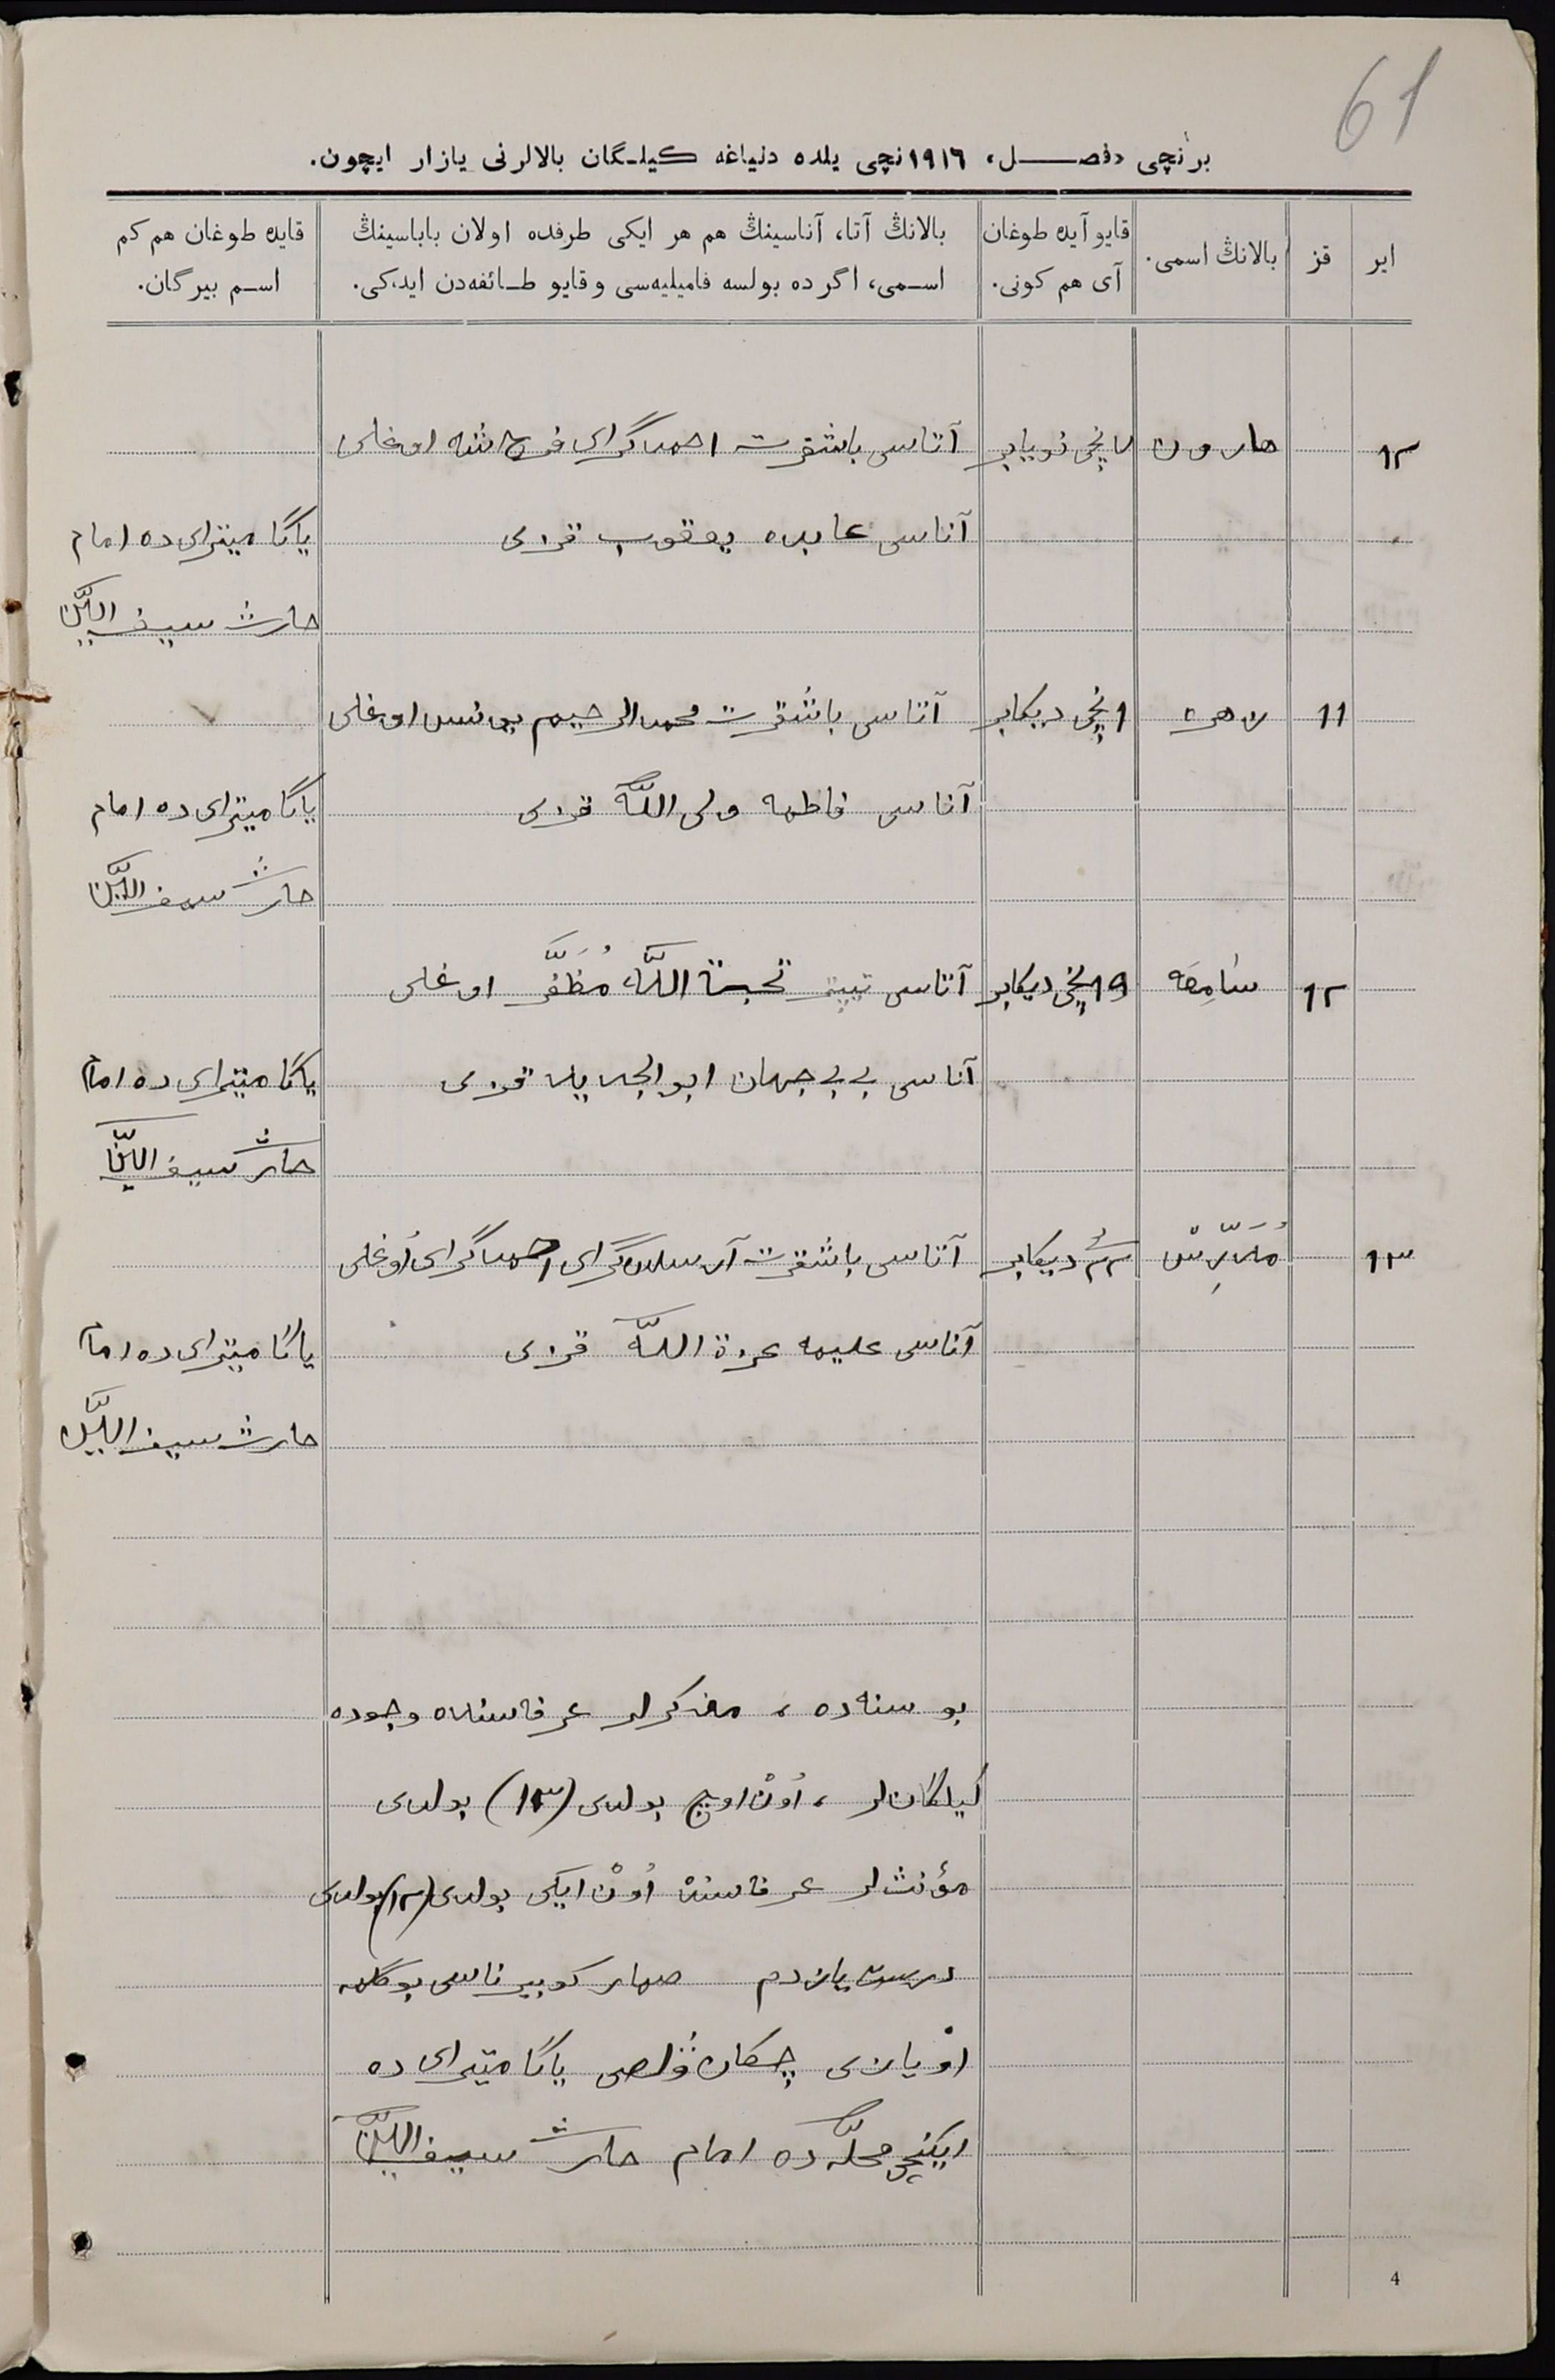 61
برنچی «فصل» ۱۹۱٦نچی یلده دنیاغه کیلـگان بالالرنی یازار ایچون.
ایر
قز
بالانڭ اسمی.
قایو آیده طوغان
آی هم کونی.
بالانڭ آتا، آناسینڭ هم هر ایکی طرفده اولان باباسینڭ
اسـمی، اگر ده بولسه فامیلیه‌سی و قایو طـائفه‌دن ایدکی.
قایده طوغان هم کم
اسـم بیرگان.
۱۲ هارون ۷ نچی نویابر آتاسی باشقرت احمدگرای فرح‌شه اوغلی
آناسی عابده یعقوب قزی یاڭا میترای ده امام
حارث سیف الدین
11 زهره ۱ نچی دیکابر آتاسی باشقرت محمدالرحیم یونس اوغلی
آناسی فاطمه ولی اللّه قزی یاڭا میترای ده امام
حارث سیف الدین
۱۲ سَامِعَه 19 نچی دیکابر آتاسی تیپتر اللّه مُظَفَّر اوغلی
آناسی بی بی جهان ابوالجلیل قزی یاڭا میترای ده امام
حارث سیف الدین
۱۳ مُدَرِّسْ ۲۲ دیکابر آتاسی باشقرت آرسلان‌گرای احمدگرای اُوغلی
آناسی علیمه عزة اللّه قزی یاڭا میترای ده امام
حارث سیف الدین
بو سنه ده، مذکرلر عرفاسنده وجوده
کیلگان‌لر، اُونْ اوچ بولدی (۱۳) بولدی
مؤنث‌لر عرفاسنده اُونْ ایکی بولدی (۱۲) بولدی
درست یازدم سمار گوبیرناسی بوگلمه
اویازی چکان وُلصی یاڭا میترای ده
ایکنچی محلّه ده امام حارث سیف الدین
4